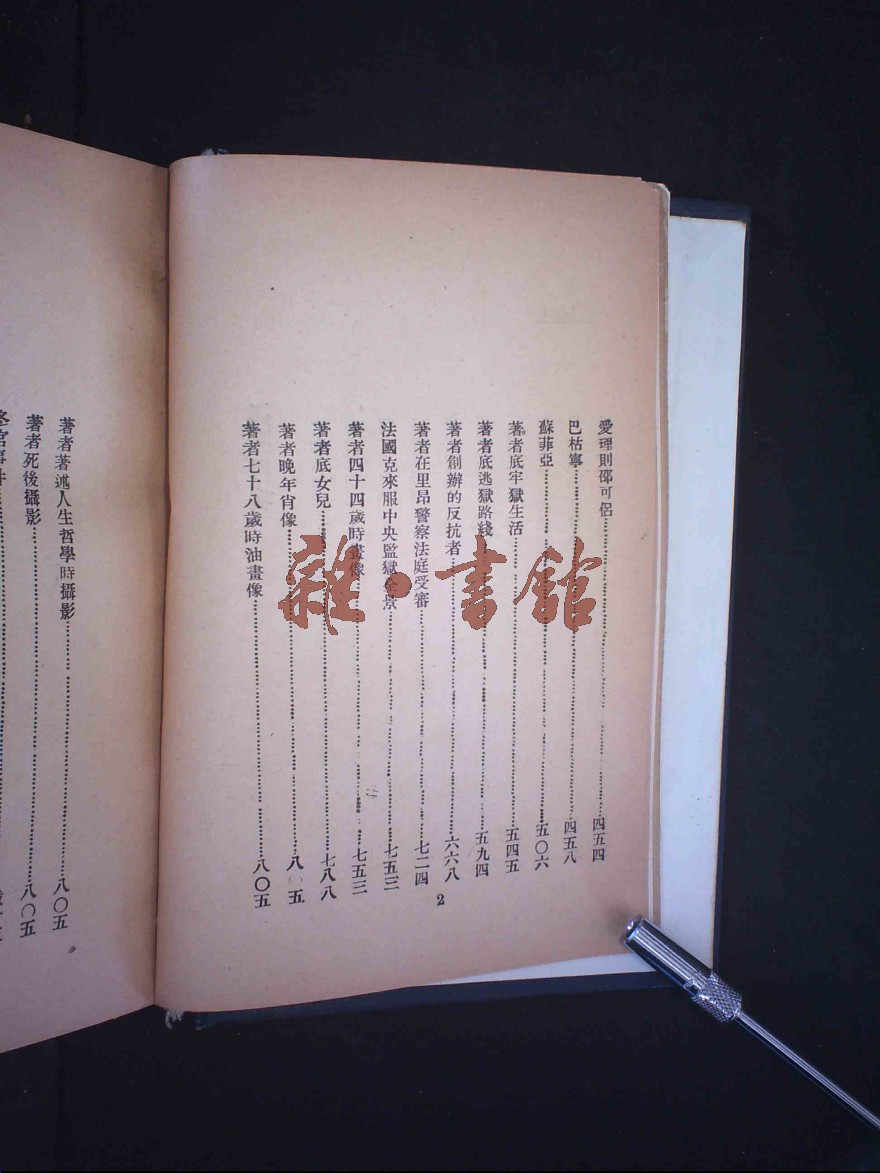 愛理則邵可侶……四五四
巴枯寧……四五八
蘇菲亞……五〇六
著者底牢獄生活……五四五
著者底逃獄路綫……五九四
著者創辦的反抗者……六六八
著者在里昂警察法庭受審……七二四
法國克來服中央監獄全景……七五三
著者四十四歲時畫像……七五三
著者底女兒……七八八
著者晚年肖像……八〇五
著者七十八歲時油畫像……八〇五
2
著者著述人生哲學時攝影……八〇五
著者死後攝影……八〇五
雜·書館